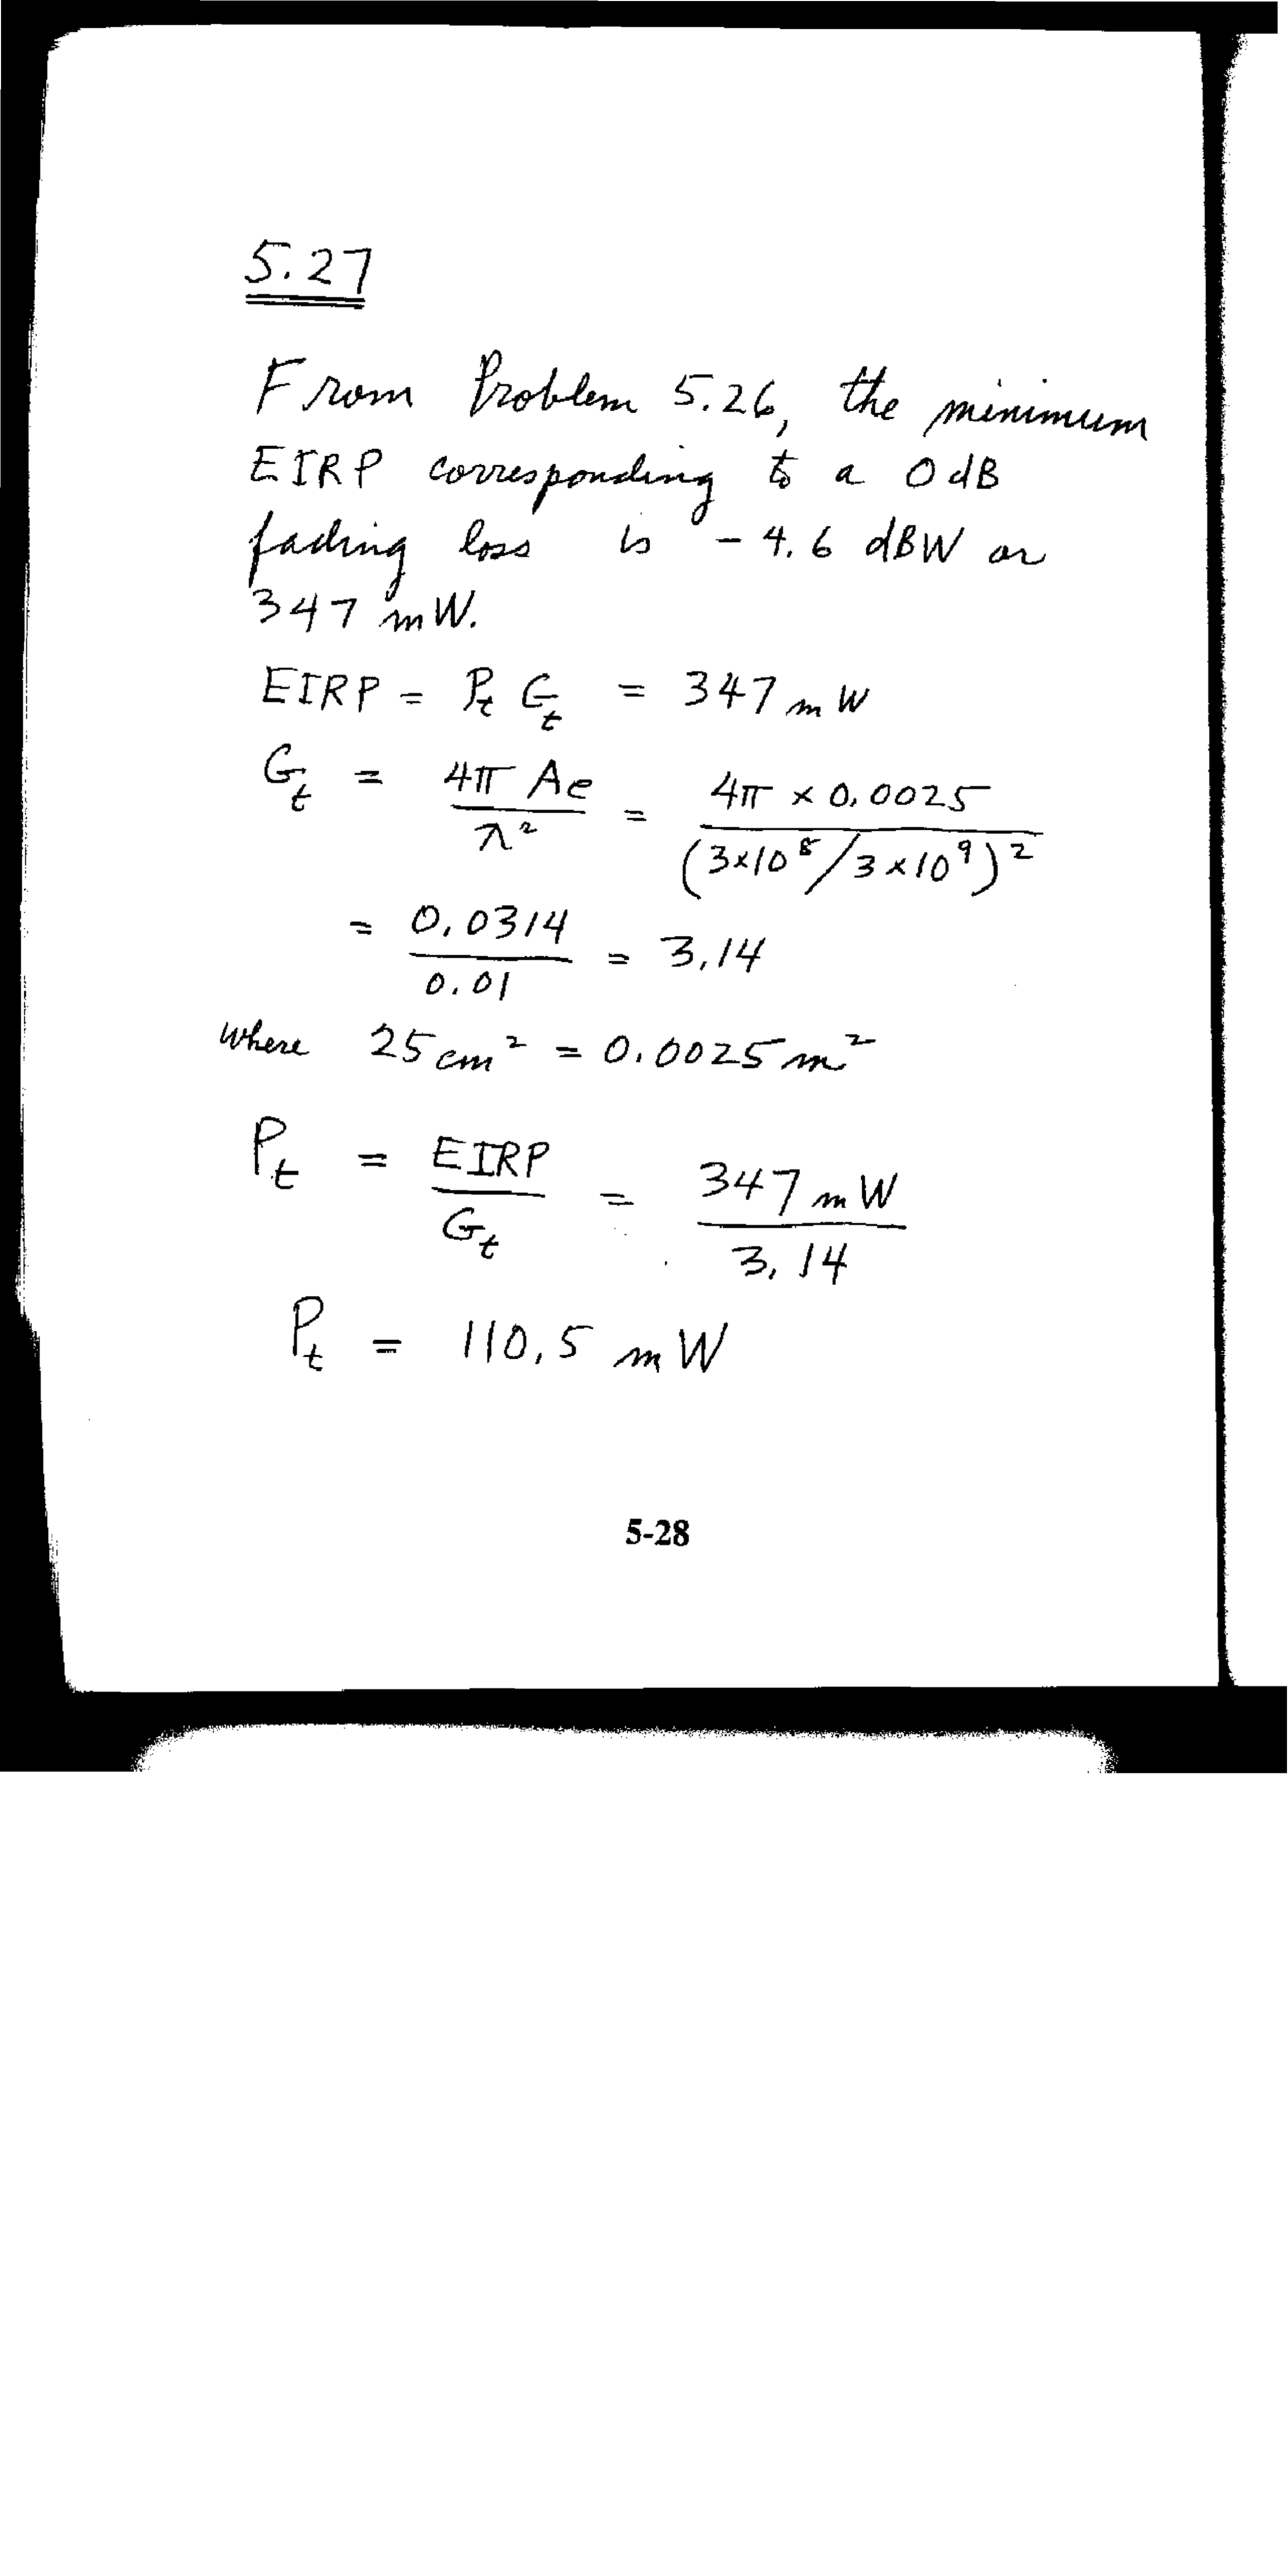 5.27
From Problem 5.26, the minimum
EIRP corresponding to a 0 dB
fading loss is - 4.6 dBW or
347 mW.
EIRP = Pt Gt = 347 mW
Gt = 4π Ae / λ² = 4π × 0.0025 / (3×10⁸/3×10⁹)²
= 0.0314 / 0.01 = 3.14
where 25 cm² = 0.0025 m²
Pt = EIRP / Gt = 347 mW / 3.14
Pt = 110.5 mW
5-28